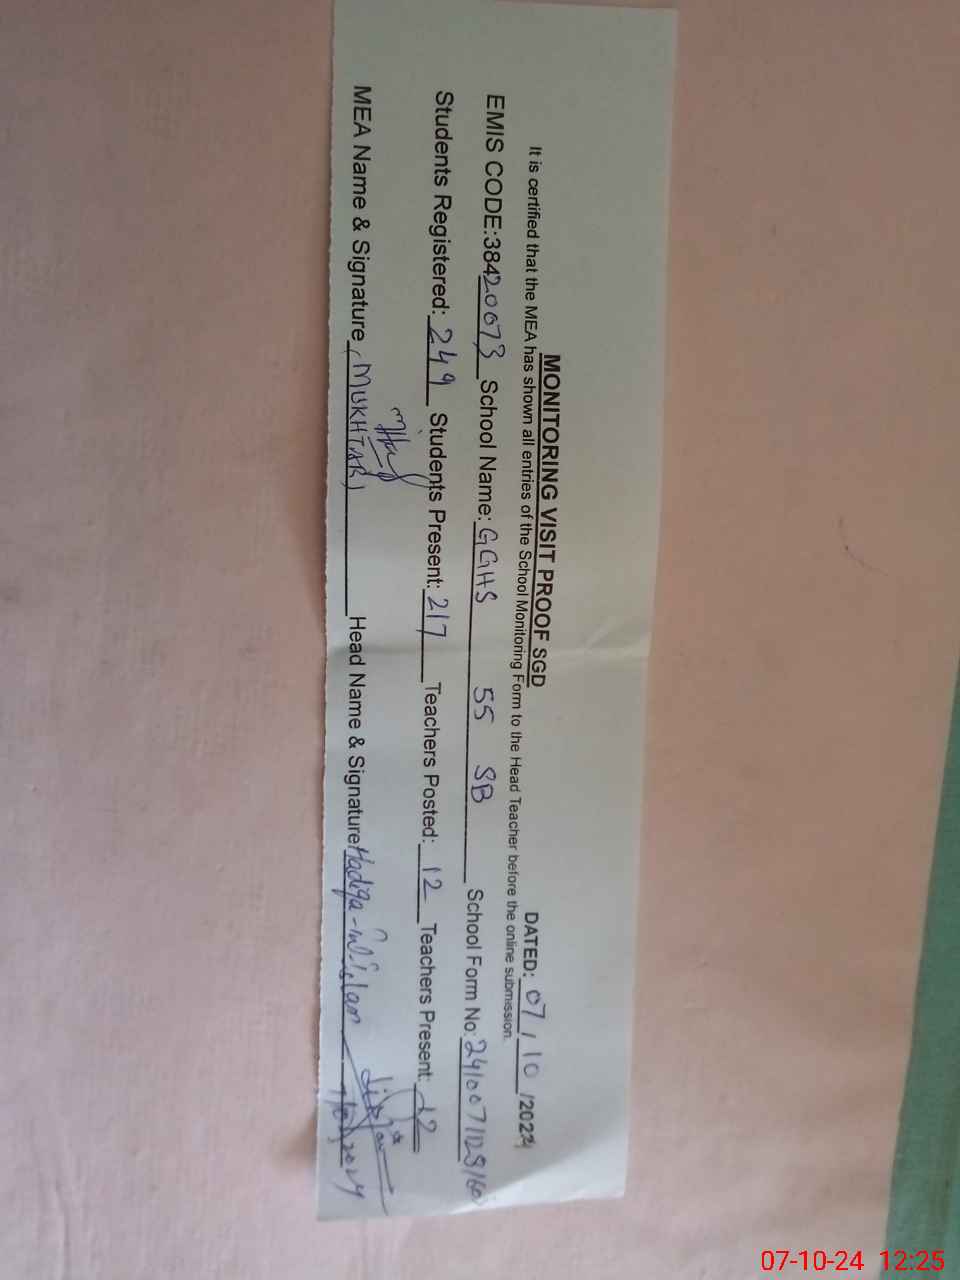 MONITORING VISIT PROOF SGD
DATED: 07/10/2024
It is certified that the MEA has shown all entries of the School Monitoring Form to the Head Teacher before the online submission.
EMIS CODE:38420073 School Name: GGHS 55 SB School Form No: 241007112816
Students Registered: 249 Students Present: 217 Teachers Posted: 12 Teachers Present: 12
MEA Name & Signature (MUKHTAR) Head Name & Signature Hadiqa-tul-Islam
07-10-24 12:25